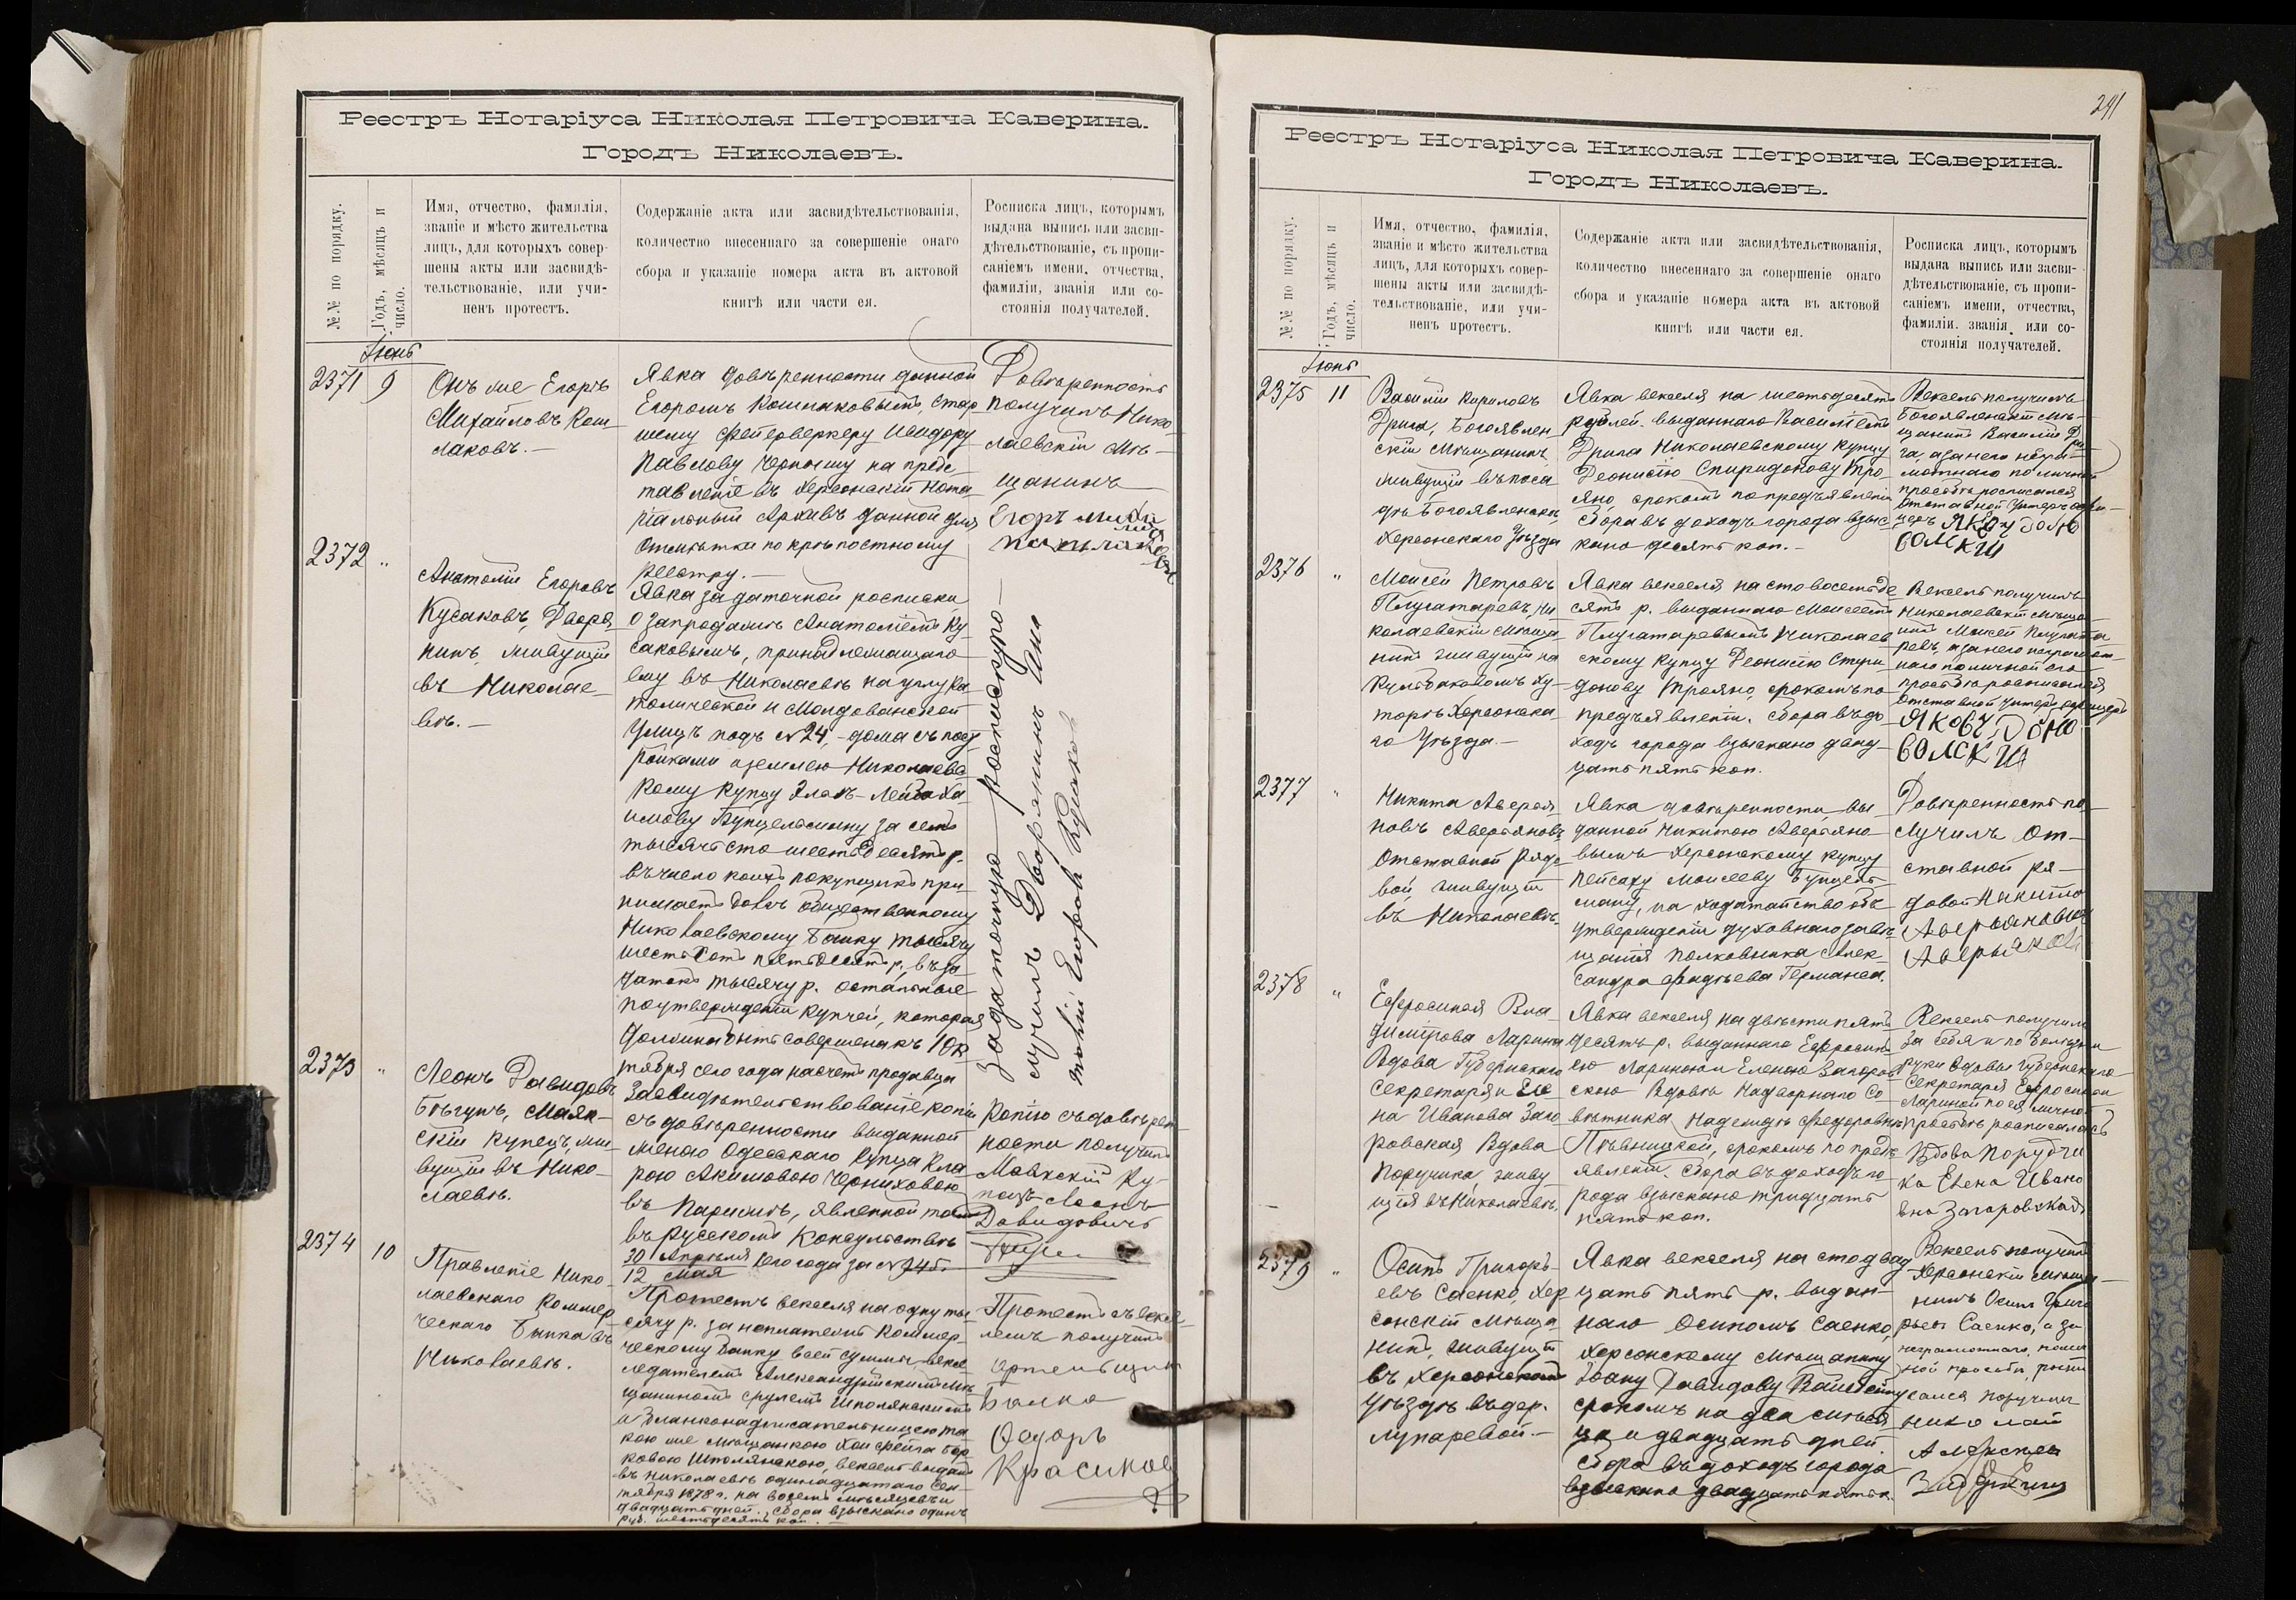 Реестръ Нотаріуса Николая Петровича Каверина.
Городъ Николаевъ.
№№ по порядку.
Годъ, мѣсяцъ и
число.
Имя, отчество, фамилія,
званіе и мѣсто жительства
лицъ, для которыхъ совер-
шены акты или засвидѣ-
тельствованіе, или учи-
ненъ протестъ.
Содержаніе акта или засвидѣтельствованія,
количество внесеннаго за совершеніе онаго
сбора и указаніе номера акта въ актовой
книгѣ или части ея.
Росписка лицъ, которымъ
выдана выпись или засви-
дѣтельствованіе, съ пропи-
саніемъ имени, отчества,
фамиліи, званія или со-
стоянія получателей.
Іюнь
2371
9
Онъ же Егоръ
Михайловъ Кош-
лаковъ.—
Явка довѣренности данной
Егоромъ Кошлаковымъ, Стар
шему фейерверкеру Исидору
Павлову Чернышу на предс
тавленіе въ Херсонскій Нота
ріальный Архивъ данной для
отмѣтки по крѣпостному
реестру.—
Довѣренность
получилъ Нико-
лаевскій Мѣ-
щанинъ
Егоръ
2372
"
Анатолій Егоровъ
Кусаковъ, Дворя
нинъ, живущій
въ Николае-
вѣ.—
Явка задаточной росписки
о запродажѣ Анатоліемъ Ку-
саковымъ, принадлежащаго
ему въ Николаевѣ на углу Ка
толической и Молдованской
улицъ подъ №24,- дома съ пост
ройками и землею Николаевс
кому купцу Элья-Лейбъ Ха
имову Бунцельману за семь
тысячъ сто шестьдесятъ р.
въ число коихъ покупщикъ при
нимаетъ долгъ общественному
Николаевскому Банку тысячу
шестьсотъ пятьдесятъ р, въ за
датокъ тысячу р. остальные
по утвержденіи купчей, которая
должна быть совершена къ 1 Ок
тября сего года на счетъ продавца
Задаточную росписку по-
лучилъ Дворянинъ Ана
толій Егоровъ Кусаковъ
2373
"
Леонъ Давидовъ
Бѣгунъ, Маяк-
скій купецъ, жи
вущій въ Нико-
лаевѣ.
Засвидѣтельствованіе копіи
съ довѣренности выданной
женою Одесскаго купца Кла
рою Акимовою Черниховою
въ Парижѣ, явленной тамъ
въ Русскомъ Консульствѣ
30 Апрѣля сего года за №
12 Мая
Копію съ довѣрен-
ности получилъ
Маякскій Ку-
пецъ Леонъ
Давидовичъ
2374
10
Правленіе Нико-
лаевскаго Коммер
ческаго Банка въ
Николаевѣ.
Протестъ векселя на одну ты
сячу р. за неплатежъ Коммер-
ческому Банку всей суммы вексе
ледателемъ Александрійскимъ Мѣ
щаниномъ Срулемъ Шполянскимъ
и бланконадписательницею та
кою же мѣщанкою Хаи фейга Бер
ковою Шполянскою, вексель выданъ
въ Николаевѣ одинадцатаго Сен
тября 1878 г. на восемь мѣсяцевъ и
двадцать дней. Сбора взыскано одинъ
руб. шестьдесятъ коп.
Протестъ съ вексе
лемъ получилъ
артельщикъ
Банка
Федоръ
Красиков
291
Реестръ Нотаріуса Николая Петровича Каверина.
Городъ Николаевъ.
№№ по порядку.
Годъ, мѣсяцъ и
число.
Имя, отчество, фамилія,
званіе и мѣсто жительства
лицъ, для которыхъ совер-
шены акты или засвидѣ-
тельствованіе, или учи-
ненъ протестъ.
Содержаніе акта или засвидѣтельствованія,
количество внесеннаго за совершеніе онаго
сбора и указаніе номера акта въ актовой
книгѣ или части ея.
Росписка лицъ, которымъ
выдана выпись или засви-
дѣтельствованіе, съ пропи-
саніемъ имени, отчества,
фамиліи, званія или со-
стоянія получателей.
Іюнь
2375
11
Василій Кириловъ
Дрига, Богоявлен
скій Мѣщанинъ
живущій въ поса
дѣ Богоявленскѣ,
Херсонскаго Уѣзда
Явка векселя на шестьдесятъ
рублей. выданнаго Василіемъ
Дрига Николаевскому Купцу
Деонисію Спиридонову Тро
яно, срокомъ по предъявленіи
сбора въ доходъ города взыс
кано десять коп.—
Вексель получилъ
Богоявленскій Мѣ-
щанинъ Василій Д
ри
га, а за него неграг-
мотнаго по личной
просьбѣ росписался
Отставной Унтеръ офи-
церъ Якову Домо
вомкш
2376
"
Моисей Петровъ
Плугатаревъ, Ни
колаевскій Мѣща
нинъ живущій на
Кульбакиномъ Ху-
торѣ Херсонска-
го Уѣзда.—
Явка векселя на сто восемьде
сятъ р. выданнаго Моисеемъ
Плугатаревымъ Николаев
скому Купцу Деонисію Спири
донову Трояно, срокомъ по
предъявленіи. сбора въ до
ходъ города взыскано двад-
цать пять коп.
Вексель получилъ
Николаевскій мѣща
нинъ Моисей Плугата
ревъ, а за него неграмот-
наго по личной его
просьбѣ росписался
отставной унтеръ офицеръ
Якову
2377
"
Никита Аверья
новъ Аверьяновъ
Отставной рядо
вой, живущій
въ Николаевѣ.
Явка довѣренности, вы
данной Никитою Аверьяно
вымъ Херсонскому купцу
Пейсаху Моисееву Бунцель
ману, на ходатайство объ
утвержденіи духовнаго завѣ
щанія полковника Алек-
сандра Фадѣева Германса.
Довѣренность по
лучилъ от-
ставной ря-
довой Никита
Аверьяновъ
Аверьянов
2378
"
Ефросинья Вла
димірова Ларина
Вдова Губернскаго
Секретаря и Еле
на Иванова Заго
ровская Вдова
Поручика, живу
щія въ Николаевѣ.
Явка векселя на двѣсти пять
десятъ р. выданнаго Ефросинь
ею Лариною и Еленою Загоров
скою Вдовѣ Надворнаго Со
вѣтника Надеждѣ Федоровнѣ
Пѣвницкой, срокомъ по предъ
явленіи. сбора въ доходъ го
рода взыскано тридцать
пять коп.
Вексель получила
за себя и по болѣзни
руки вдовы Губернскаго
Секретаря Ефросиніи
Лариной по ея личной
просьбѣ росписалась
Вдова Поручи
ка Елена Ивано
вна Загоровская
2379
"
Осипъ Григорь
евъ Саенко, Хер
сонскій Мѣща
нинъ, живущій
въ Херсонскомъ
Уѣздѣ въ дер.
Лупаревой.—
Явка векселя на сто двад
цать пять р. выдан-
наго Осипомъ Саенко,
Херсонскому Мѣщанину
Іоану Давидову Вайсбейну
срокомъ на два мѣся
ца и двадцать дней.
Сбора въ доходъ города
взыскано двадцать пять к.
Вексель получилъ
Херсонскій мѣща-
нинъ Осипъ Григо
рьевъ Саенко, а за
неграмотнаго, по лич
ной просьбѣ, роспи
сался поручикъ
Николай